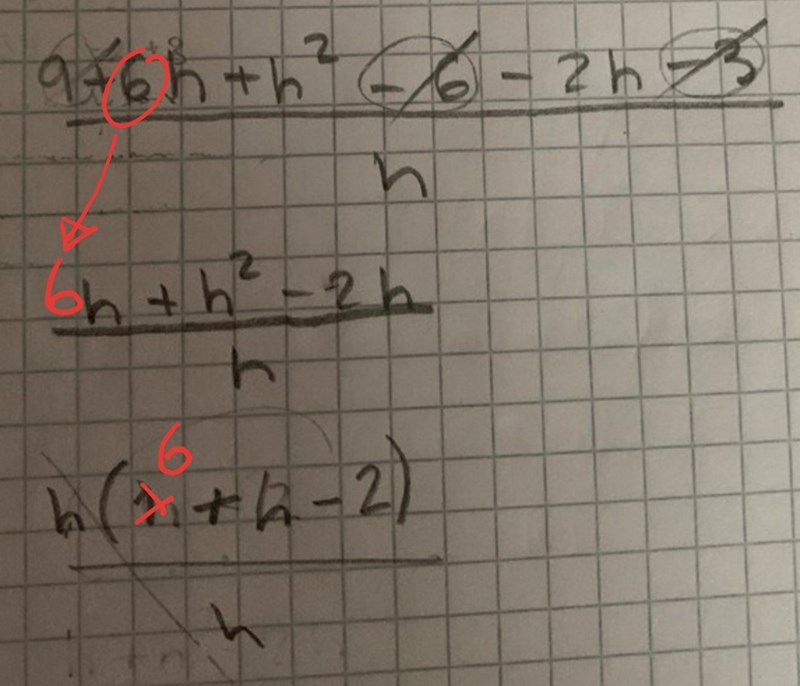 9+6h + h² - 6 - 2h - 3
h
6h + h² - 2h
h
6
h(h + h - 2)
h